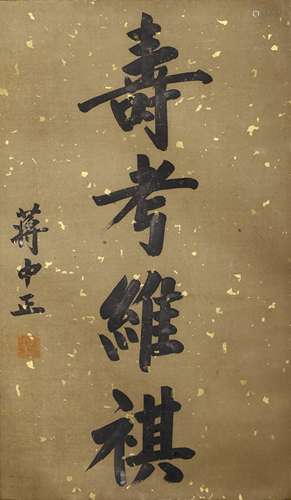 壽考維祺
蔣中正